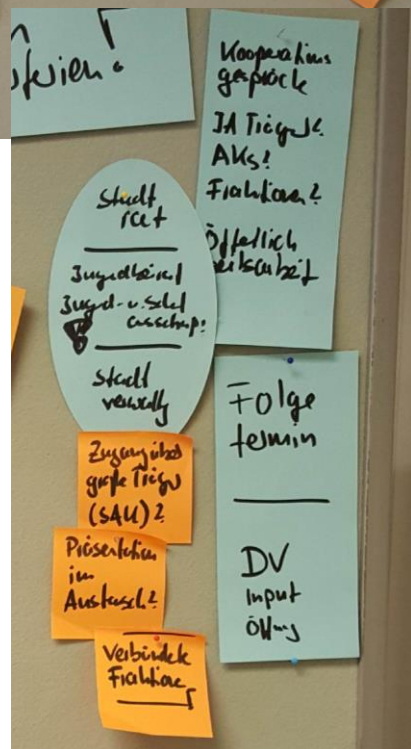 Kooperations
gespräche
JA Träger?
AKs?
Fraktionen?
Öffentlich
eitsarbeit
Stadt
rat
Jugendbeirat
Jugend- u. Schul
ausschuss?
Stadt
verwaltg
Folge
termin
DV
Input
Öffng
Zugang über
große Träger
(SAK)?
Präsentation
im
Austausch?
Verbündete
Fraktionen